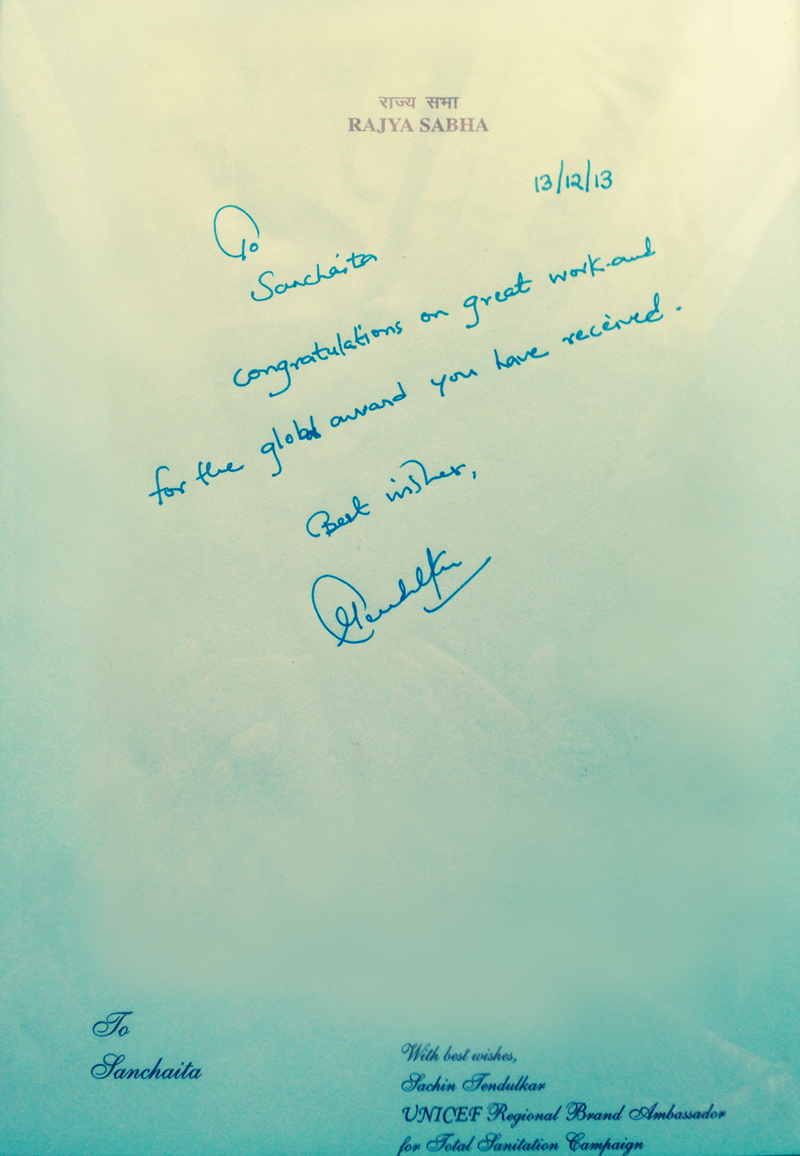 राज्य सभा
RAJYA SABHA
13/12/13
To
Sanchaita
congratulations on great work and
for the global award you have received.
Best wishes,
Tendulkar
To
Sanchaita
With best wishes,
Sachin Tendulkar
UNICEF Regional Brand Ambassador
for Total Sanitation Campaign